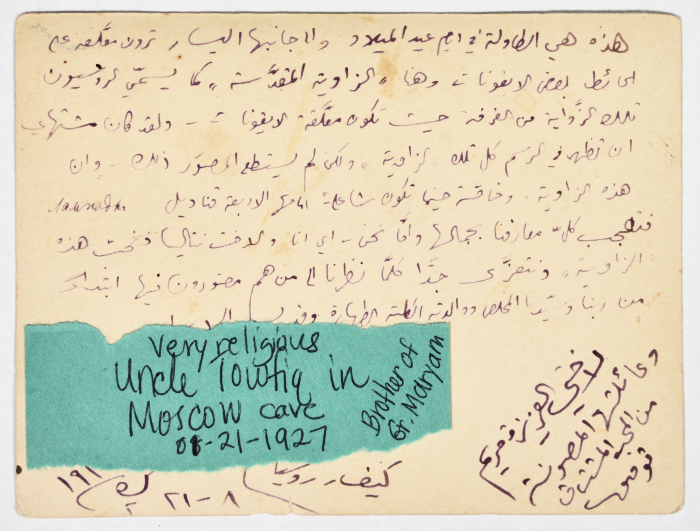 هذه هي الطاولة في ايام عيد الميلاد والى جانبها اليسار ترون معلّقة على
الحائط بعض الايقونات وهنا „الزاوية المقدّسة" كما يسمّي الروسيون
تلك الزَّاوية من الغرفة حيث تكون معلَّقة الايقونات - ولقد كان مشتهاي
ان تظهر في الرسم كل تلك الزاوية، ولكن لم يستطع المصوّر ذلك - وان
هذه الزاوية وخاصّة حينما تكون شاعلة امامها الاربعة قناديل
فتعجب كلَّ معارفنا بجمالها وامَّا نحن - اي انا والاخت نتاليا فتحت هذه
„الزاوية" ونتعزَّى جدًّا كلَّما نظرنا الى من هم مصَوَّرون فيها ابتداءً
من ربنا وسيّدنا المخلص ووالدته الكلية الطهارة
very religious
Uncle Towfiq in
Moscow cave
01-21-1927
Brother of
Gr. Maryam
لاختي العزيزة مريم
وعائلتها المصونة
من المحب المشتاق
توفيق
كييف روسيا
٨-٢١